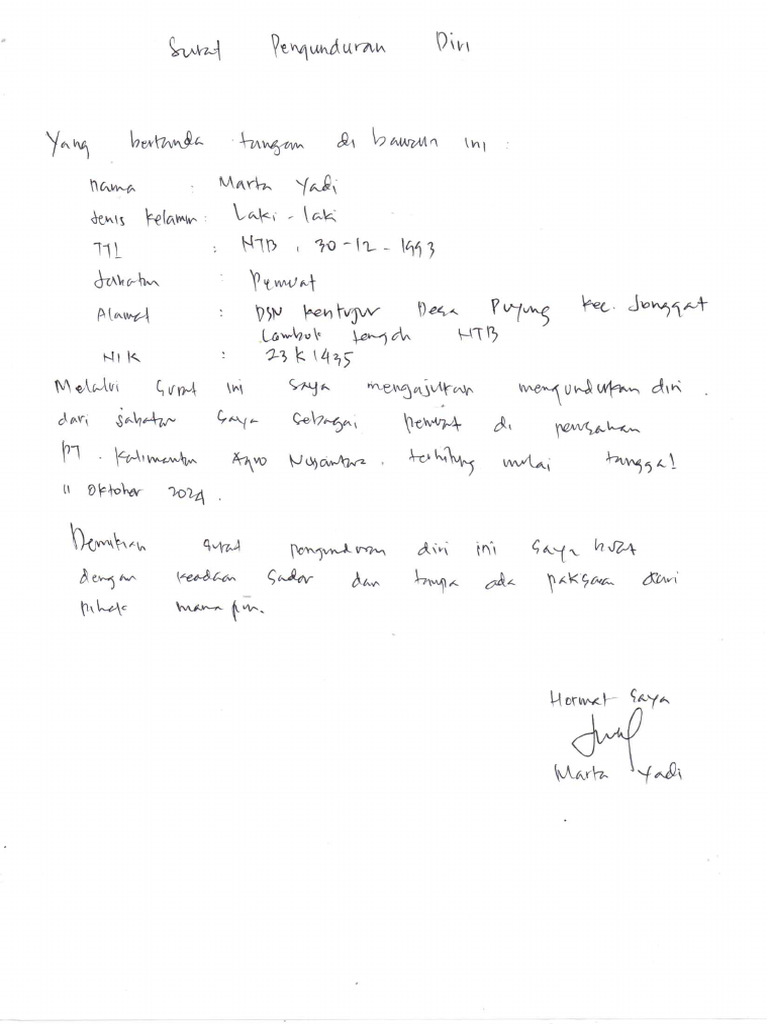 Surat Pengunduran Diri
Yang bertanda tangan di bawah ini :
nama : Marta Yadi
Jenis Kelamin : Laki - laki
TTL : NTB , 30-12-1993
Jabatan : Pemuat
Alamat : DSN Kentugur Desa Puyung Kec. Jonggat
Lombok tengah NTB
NIK : 23 K 1435
Melalui surat ini saya mengajukan mengundurkan diri .
dari jabatan saya sebagai pemuat di perusahan
PT . Kalimantan Agro Nusantara . terhitung mulai tanggal
11 Oktober 2024 .
Demikian surat pengunduran diri ini saya buat
dengan keadaan sadar dan tanpa ada paksaan dari
pihak mana pun.
Hormat saya
Marta Yadi